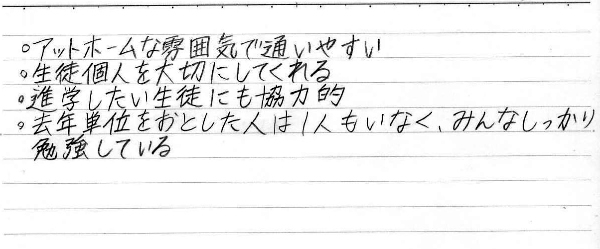 ○アットホームな雰囲気で通いやすい
○生徒個人を大切にしてくれる
○進学したい生徒にも協力的
○去年単位をおとした人は1人もいなく、みんなしっかり
勉強している